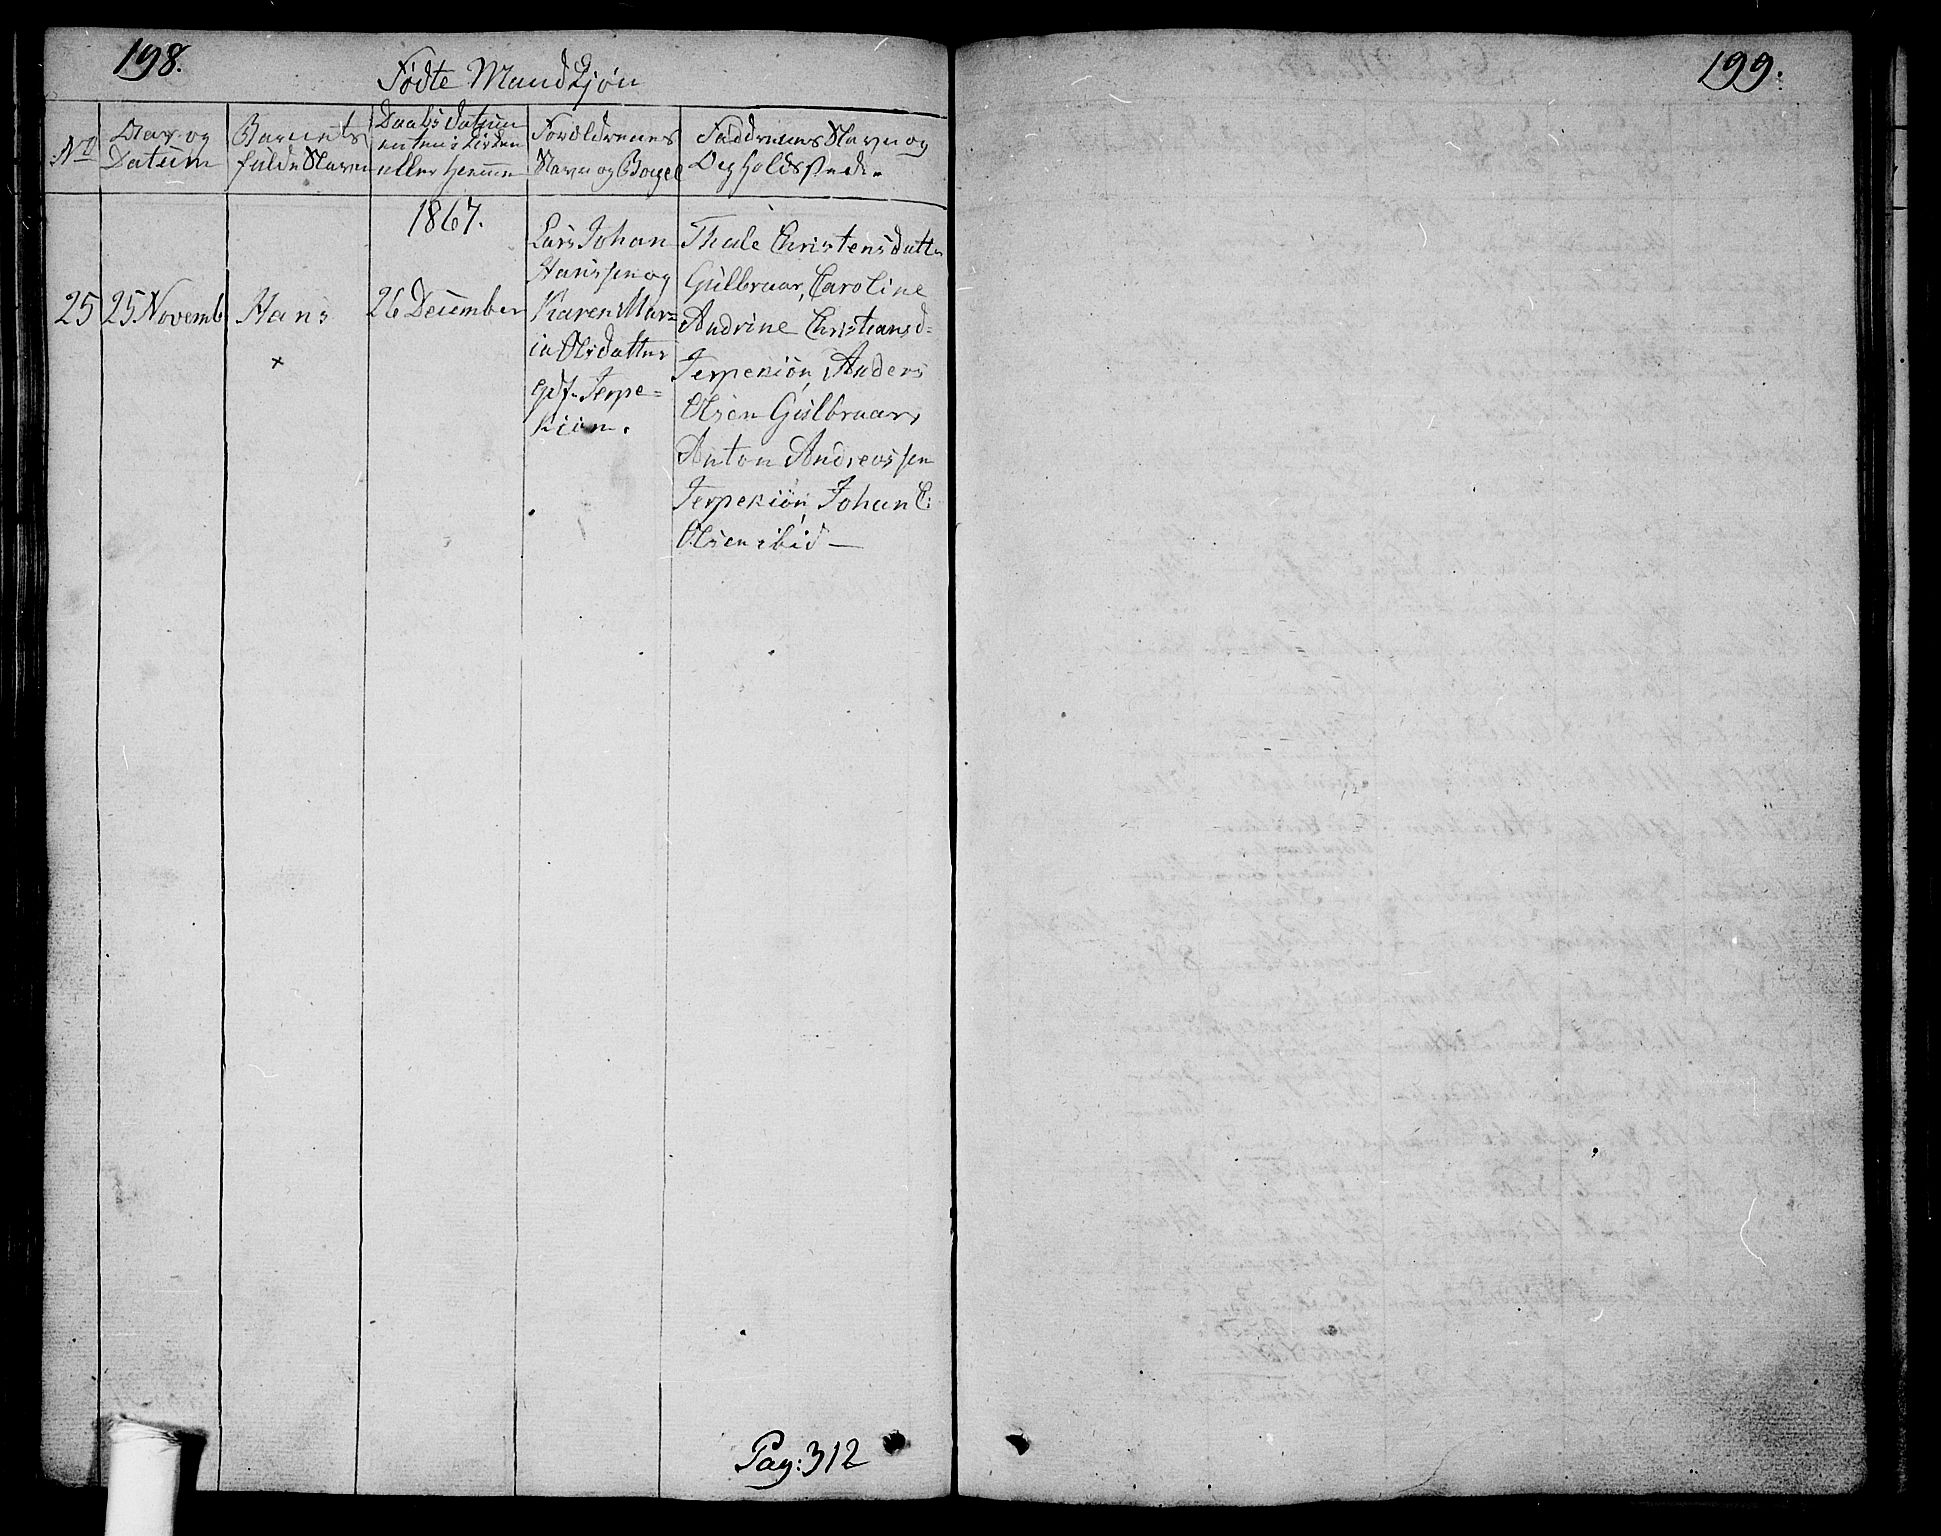 198.
Fødte Mandkjøn
No
Dag og
Datum
Barnets
fulde Navn
Daabsdatum
enten i Kirken
eller hjemme
Forældrenes
Navn og Bopæl
Faddrenes Navn og
Opholdssted.
1867.
25
25 Novemb
Hans
×
26 December
Lars Johan
Hanssen og
Karen Mar=
ia Olsdatter
Terpe=
kiøn.
Thale Christensdatter
Gulbraar, Caroline
Andrine Christiansd=
Terpekiøn, Anders
Olsen Gulbraar,
Anton Andreassen
Terpekiøn, Johan C:
Olsen ibid —
Pag: 312
199.